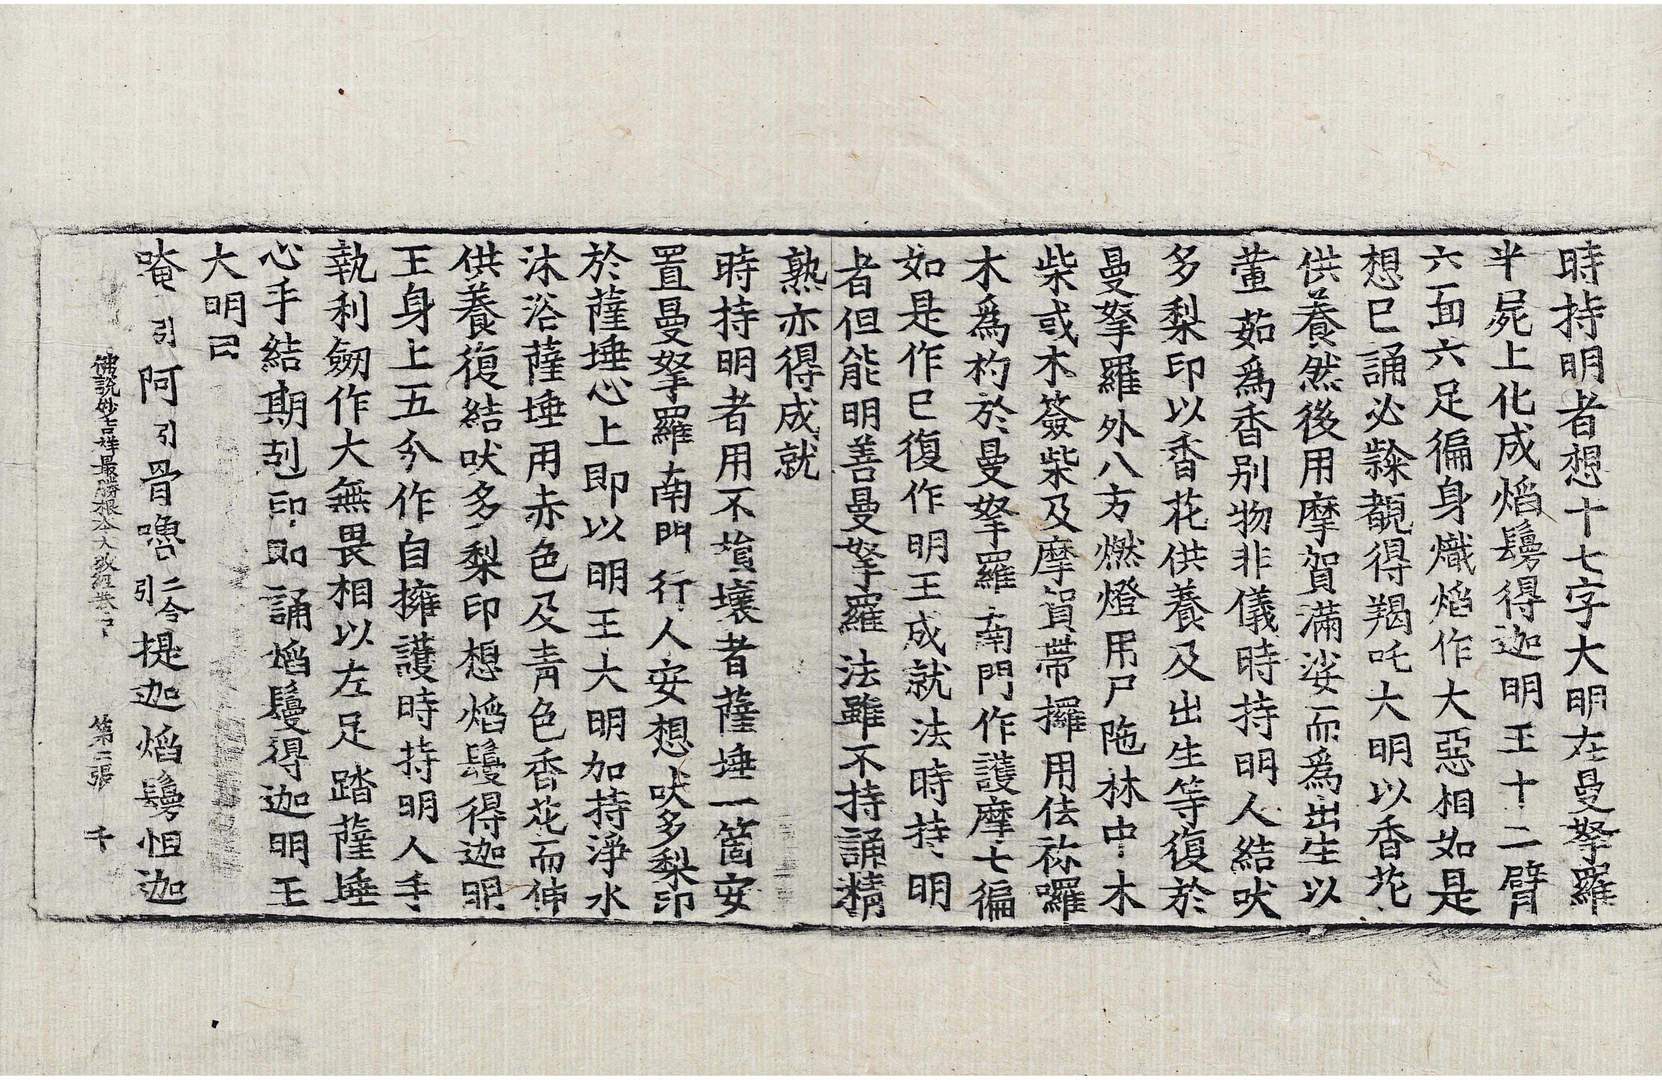 時持明者想十七字大明在曼拏羅
半屍上化成焰鬘得迦明王十二臂
六面六足徧身熾焰作大惡相如是
想已誦必隸覩得羯吒大明以香花
供養然後用摩賀滿娑而爲出生以
葷茹爲香别物非儀時持明人結吠
多梨印以香花供養及出生等復於
曼拏羅外八方燃燈用尸陁林中木
柴或木簽柴及摩賀帶攞用佉祢囉
木爲杓於曼拏羅南門作護摩七徧
如是作已復作明王成就法時持明
者但能明善曼拏羅法雖不持誦精
熟亦得成就
時持明者用不損壞者薩埵一箇安
置曼拏羅南門行人安想吠多梨印
於薩埵心上即以明王大明加持淨水
沐浴薩埵用赤色及青色香花而伸
供養復結吠多梨印想焰鬘得迦明
王身上五分作自擁護時持明人手
執利劒作大無畏相以左足踏薩埵
心手結期剋印即誦焰鬘得迦明王
大明曰
唵引阿引骨嚕二合引提迦焰鬘怛迦
佛說妙吉祥最勝根本大教經卷下 第二張 千